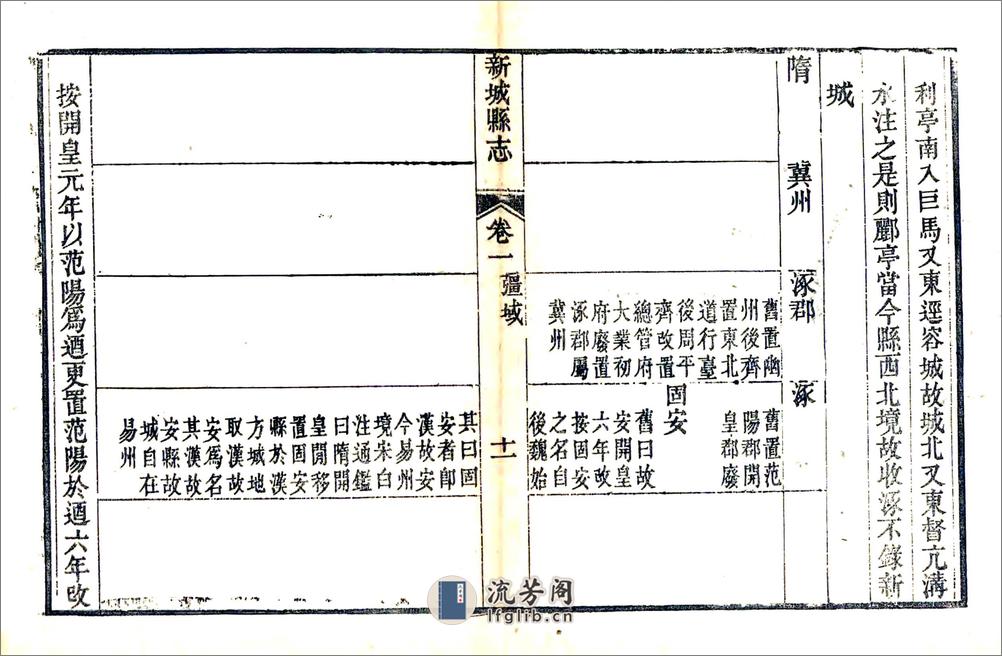 利亭南入巨馬又東逕容城故城北又東督亢溝
水注之是則酈亭當今縣西北境故收涿不錄新
城
隋
冀州
涿郡
舊置幽
州後齊
置東北
道行臺
後周平
齊改置
總管府
大業初
府廢置
涿郡屬
冀州
涿
舊置范
陽郡開
皇郡廢
固安
舊曰故
安開皇
六年改
按固安
之名自
後魏始
新城縣志
卷一
疆域
十一
其曰固
安者卽
漢故安
今易州
境宋白
注通鑑
曰隋開
皇閒移
置固安
縣於漢
方城地
取漢故
安爲名
其漢故
安縣故
城自在
易州
按開皇元年以范陽爲遒更置范陽於遒六年改
流芳阁
lfglib.cn